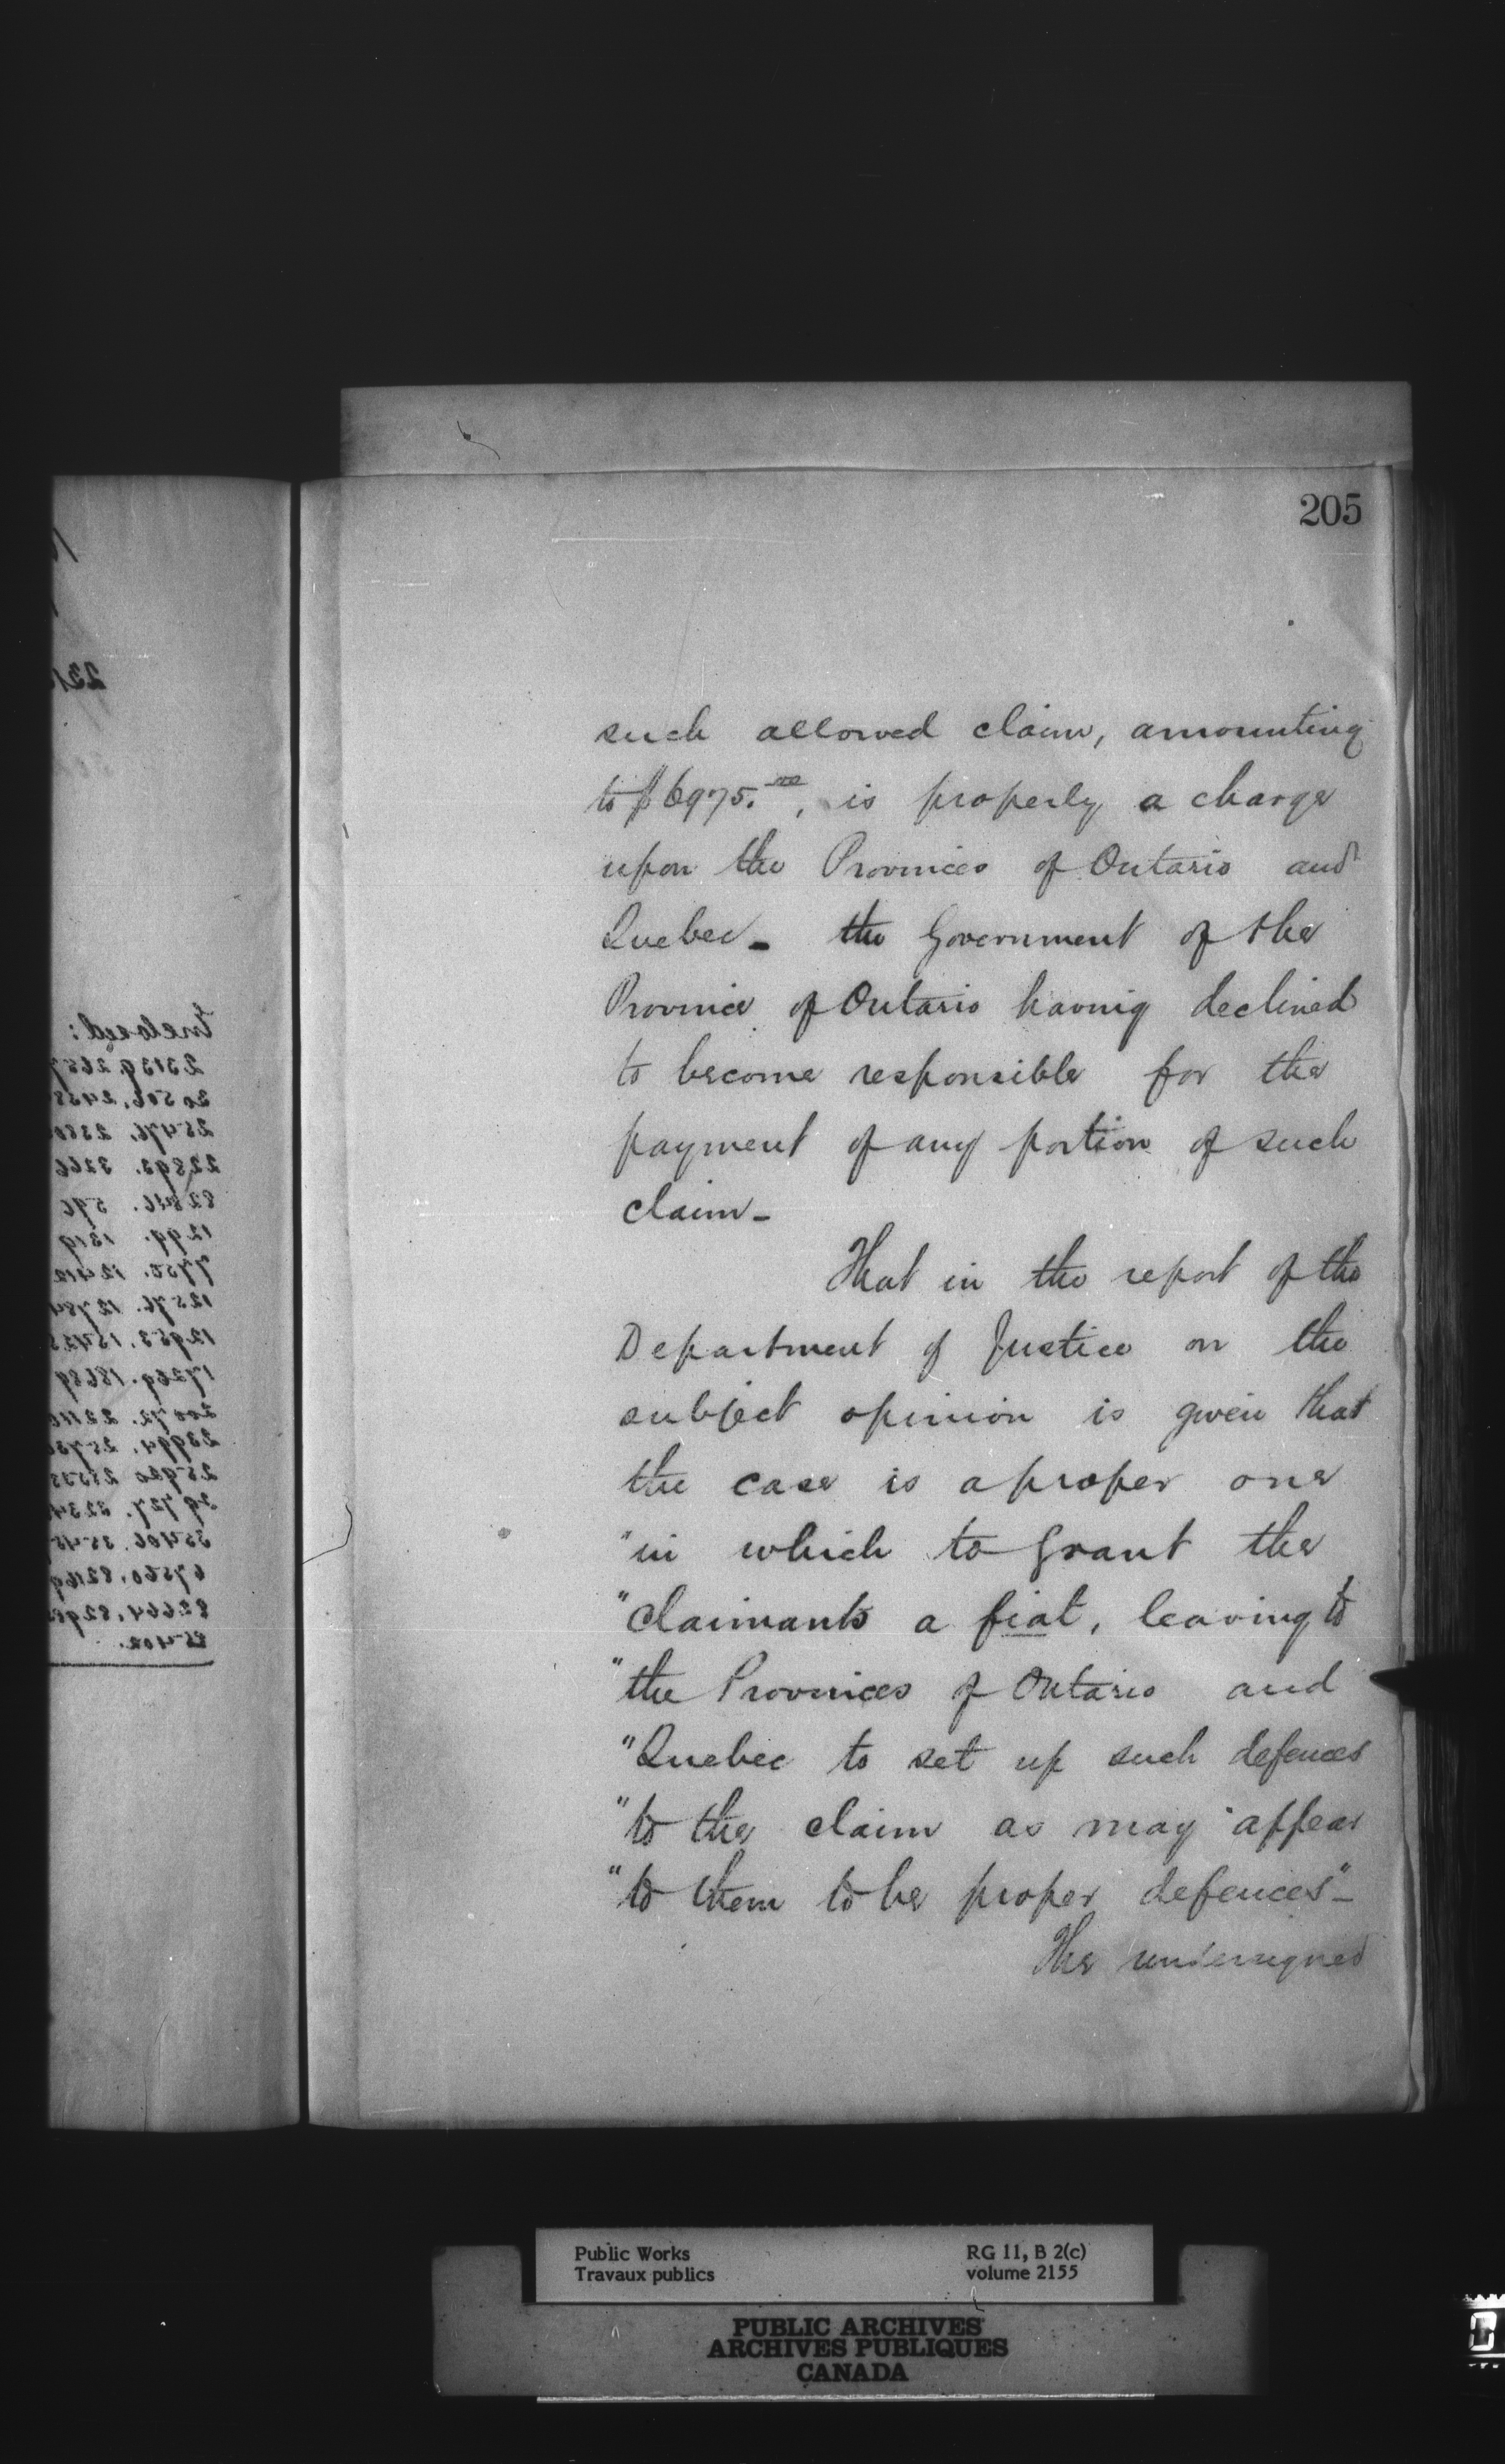 205
such allowed claim, amounting
to $6975.00, is properly a charge
upon the Provinces of Ontario and
Quebec - the Government of the
Province of Ontario having declined
to become responsible for the
payment of any portion of such
claim -
That in the report of the
Department of Justice on the
subject opinion is given that
the case is a proper one
"in which to grant the
"claimants a fiat, leaving to
"the Provinces of Ontario and
"Quebec to set up such defences
"to the claim as may appear
"to them to be proper defences" -
The undersigned
Enclosed:
Public Works
Travaux publics
RG 11, B 2(c)
volume 2155
PUBLIC ARCHIVES
ARCHIVES PUBLIQUES
CANADA